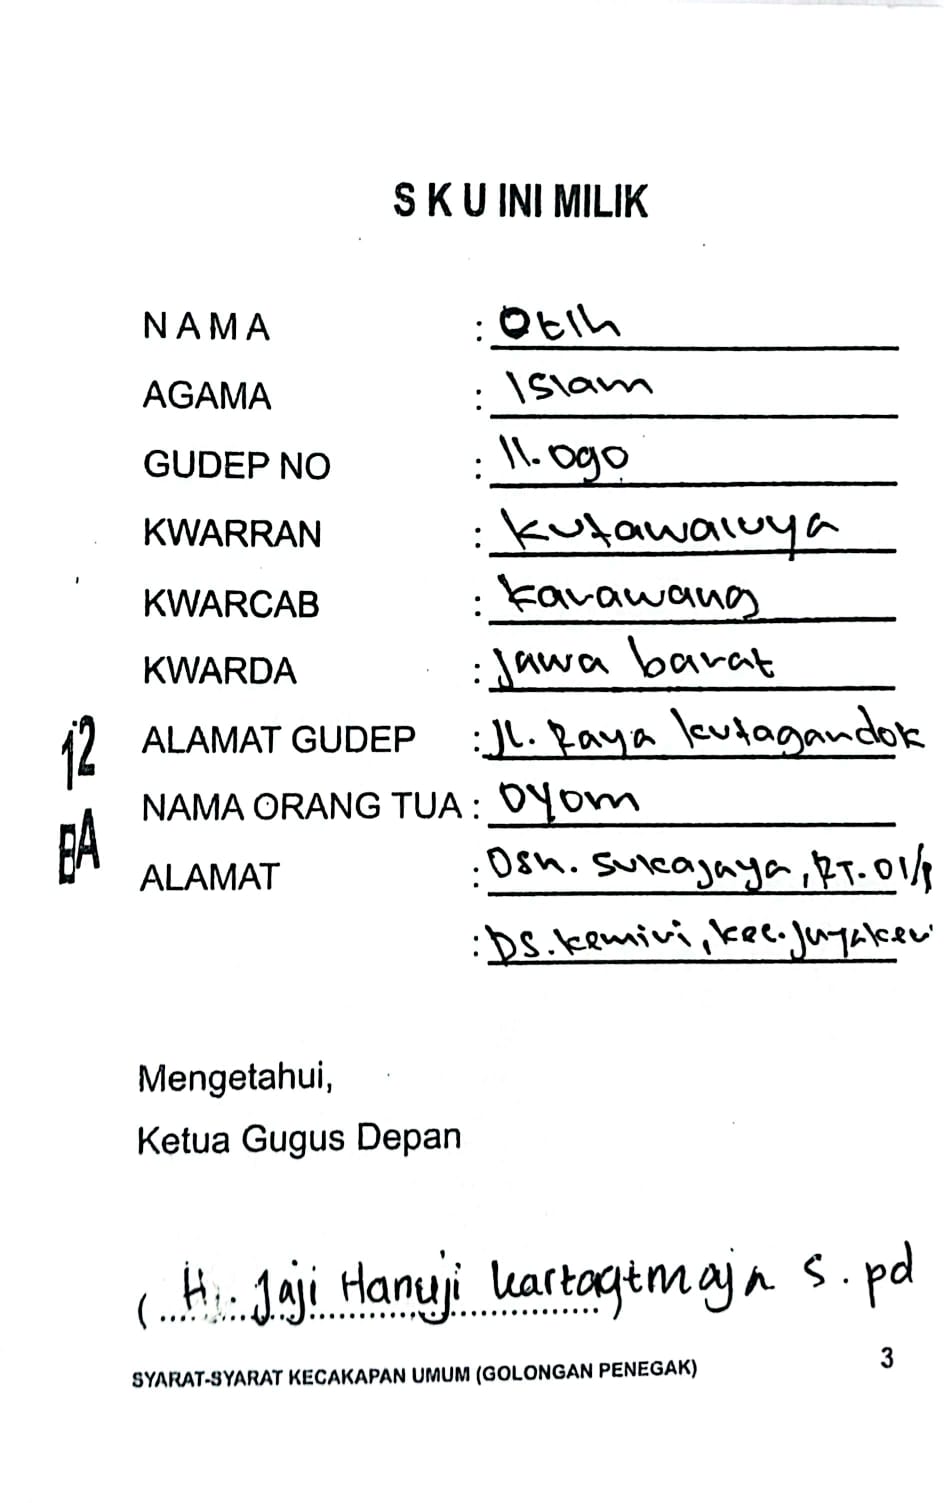 S K U INI MILIK
N A M A : Otih
AGAMA : Islam
GUDEP NO : 11.090
KWARRAN : Kutawaluya
KWARCAB : Karawang
KWARDA : Jawa barat
ALAMAT GUDEP : Jl. Raya kutagandok
NAMA ORANG TUA : Oyom
ALAMAT : Dsn. Sukajaya, RT. 01/
: DS. kemiri, kec. Jayaker
12
EA
Mengetahui,
Ketua Gugus Depan
( H. Jaji Hanuji kartaatmaja S.pd
SYARAT-SYARAT KECAKAPAN UMUM (GOLONGAN PENEGAK) 3